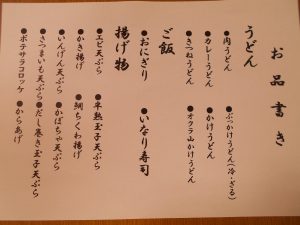 お品書き
うどん
●肉うどん
●カレーうどん
●きつねうどん
●ぶっかけうどん(冷・ざる)
●かけうどん
●オクラ山かけうどん
ご飯
●おにぎり
●いなり寿司
揚げ物
●エビ天ぷら
●かき揚げ
●いんげん天ぷら
●さつまいも天ぷら
●ポテサラコロッケ
●半熟玉子天ぷら
●鯛ちくわ揚げ
●かぼちゃ天ぷら
●だし巻き玉子天ぷら
●からあげ